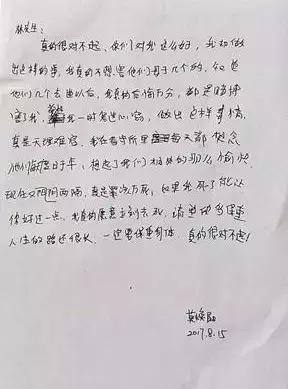 林先生：
真的很对不起，你们对我这么好，我却做
出这样的事，我真的不想害他们母子几个的，知道
他们几个去世以后，我真的后悔万分，都是赌博
害了我，我一时鬼迷心窍，做出这样事情，
真是天理难容，我在看守所里每天都想念
他们，想起了我们相处的那么愉快
现在阴阳两隔，真是罪该万死，如果我死了能让
你好过一点，我真的愿意立刻去死，请
人生的路还很长，一定要保重身体，真的很对不起！
莫焕晶
2017.8.15